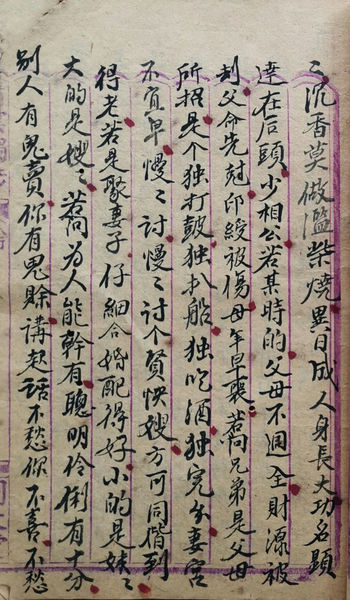 之沉香莫做濫柴燒異日成人身長大功名顯
達在后頭少相公若某時的父母不週全財源被
刦父命先尅印綬被傷母年早喪若問兄弟是父母
所招是个独打鼓独扒船独吃酒独完尔妻宮
不宜早慢之討慢之討个賢快嫂方可同偕到
得老若是娶妻子仔細合婚配得好小的是妹之
大的是嫂之若問為人能幹有聰明伶俐有十分
别人有鬼賣你有鬼賒講起話不愁你不喜不愁